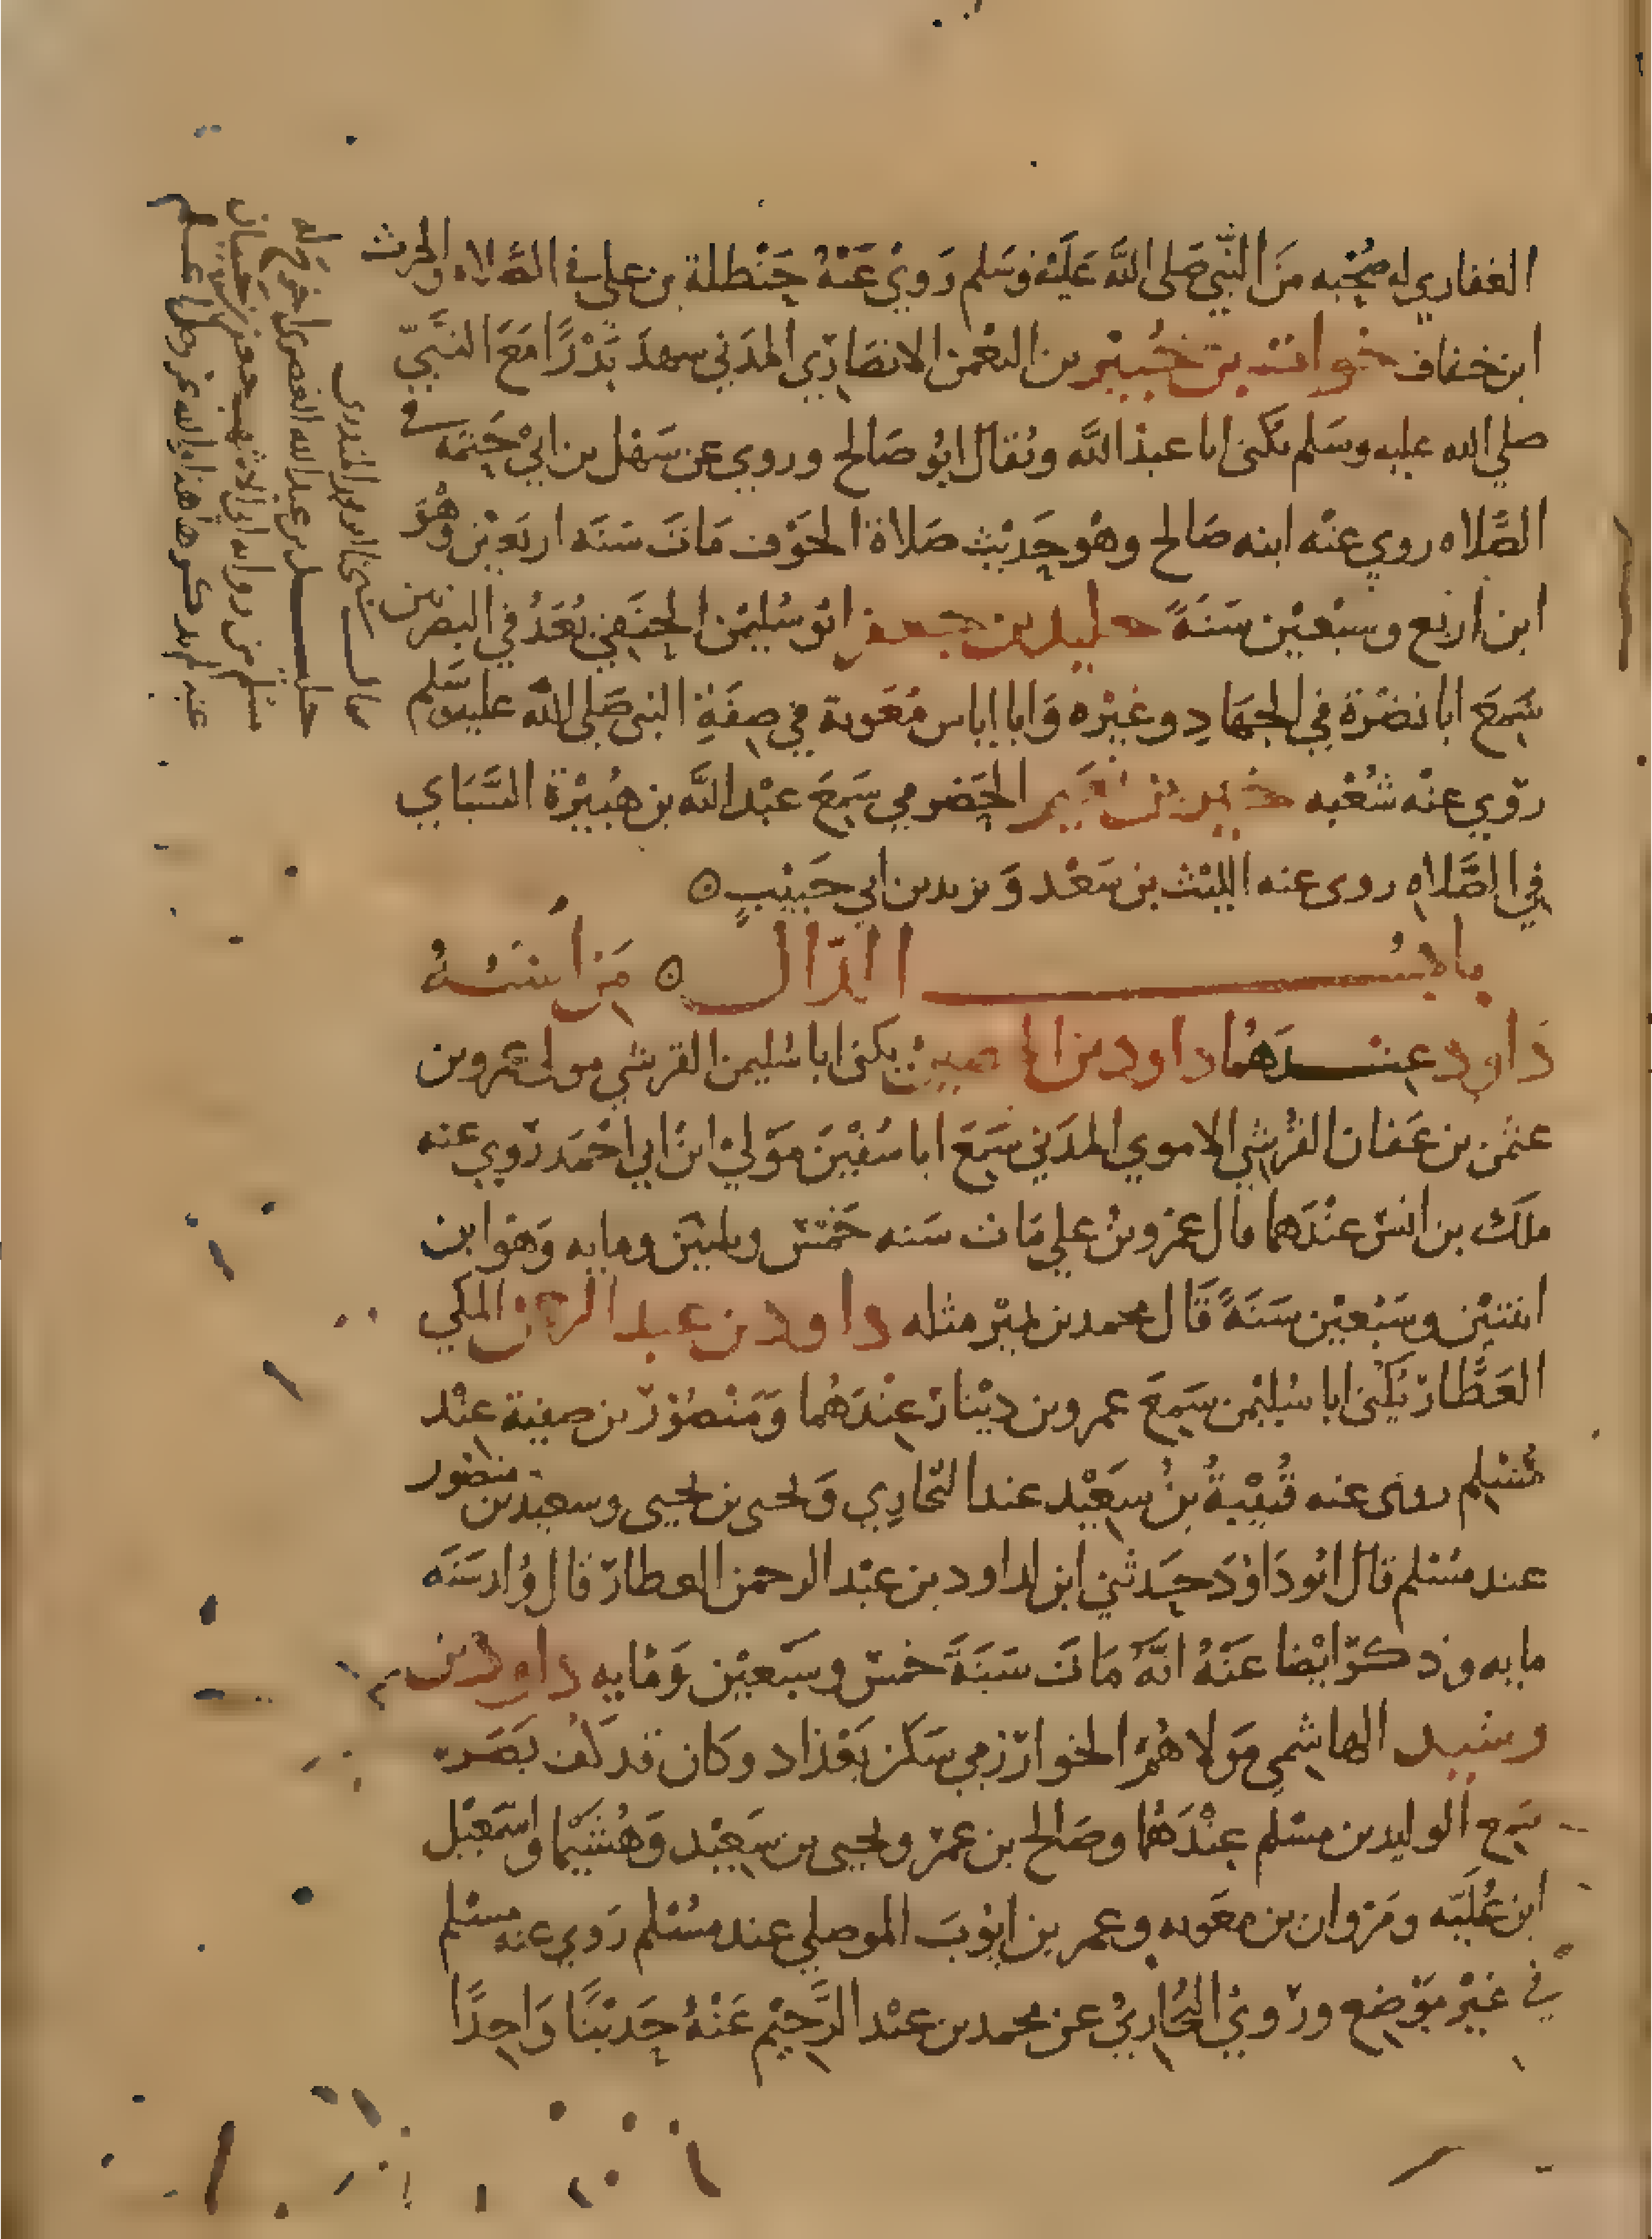 الغفاري له صحبه من النبي صلى الله عليه وسلم روي عنه حنظلة بن علي في الصلاه والحرث
ابن خفاف خوات بن جبير بن النعمن الانصاري المدني شهد بدرا مع النبي
صلي الله عليه وسلم يكنى ابا عبد الله ويقال ابو صالح وروي عن سهل بن ابي حثمه في
الصلاه روي عنه ابنه صالح وهو حديث صلاة الخوف مات سنه اربعين وهو
ابن اربع وسبعين سنة خليد بن جعفر ابو سليمن الحنفي يعد في البصريين
سمع ابا نضرة في الجهاد وغيره وابا اياس معوية في صفة النبي صلى الله عليه وسلم
روي عنه شعبه خير بن نعيم الحضرمي سمع عبد الله بن هبيرة السباي
في الصلاه روى عنه الليث بن سعد ويزيد بن ابي حبيب
باب الدال من اسمه
داود عندهما داود بن الحصين يكنى ابا سليمن القرشي مولى عمرو بن
عثمن بن عفان القرشي الاموي المدني سمع ابا سفين مولي ابن ابي احمد روي عنه
ملك بن انس عندهما قال عمرو بن علي مات سنه خمس وثلثين ومايه وهو ابن
اثنتين وسبعين سنة قال محمد بن نمير مثله داود بن عبد الرحمن المكي
العطار يكنى ابا سليمن سمع عمرو بن دينار عندهما ومنصور بن صفية عند
مسلم روى عنه قتيبة بن سعيد عند البخاري ويحيى بن يحيى وسعيد بن منصور
عند مسلم قال ابو داود حدثني ابن لداود بن عبد الرحمن العطار قال ولد سنه
مايه وذكر ايضا عنه انه مات سنة خمس وسبعين ومايه داود بن
رشيد الهاشمي مولاهم الخوارزمي سكن بغداد وكان قد كف بصره
سمع الوليد بن مسلم عندهما وصالح بن عمر ويحيى بن سعيد وهشيما واسمعيل
ابن علية ومروان بن معويه وعمر بن ايوب الموصلي عند مسلم روي عنه مسلم
في غير موضع وروي البخاري عن محمد بن عبد الرحيم عنه حديثا واحدا